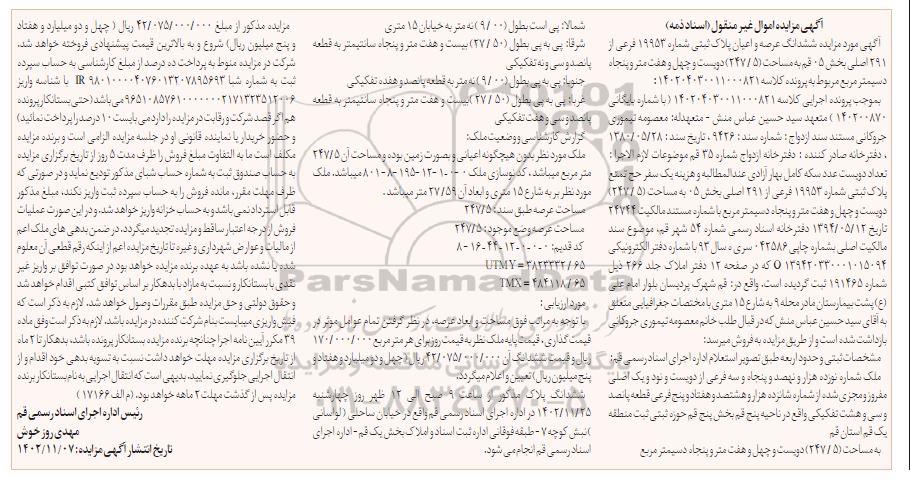 آگهی مزایده اموال غیر منقول (اسناد ذمه)
آگهی مورد مزایده ششدانگ عرصه و اعیان پلاک ثبتی شماره ۱۹۹۵۳ فرعی از
۲۹۱ اصلی بخش ۰۵ قم به مساحت (۲۴۷/۵) دویست و چهل و هفت متر و پنجاه
دسیمتر مربع مربوط به پرونده کلاسه ۱۴۰۲۰۴۰۳۰۰۱۱۰۰۰۸۲۱:
بموجب پرونده اجرایی کلاسه ۱۴۰۲۰۴۰۳۰۰۱۱۰۰۰۸۲۱ (با شماره بایگانی
۱۴۰۲۰۰۸۷۰) متعهد سید حسین عباس منش - متعهدله: معصومه تیموری
جروکانی مستند سند ازدواج: شماره سند: ۹۴۲۶، تاریخ سند: ۱۳۸۰/۰۵/۲۸
، دفترخانه صادر کننده: دفترخانه ازدواج شماره ۳۵ قم موضوعات لازم الاجرا:
تعداد دویست عدد سکه کامل بهار آزادی عندالمطالبه و هزینه یک سفر حج تمتع
پلاک ثبتی شماره ۱۹۹۵۳ فرعی از ۲۹۱ اصلی بخش ۰۵ به مساحت (۲۴۷/۵)
دویست و چهل و هفت متر و پنجاه دسیمتر مربع با شماره مستند مالکیت ۲۴۷۴۴
تاریخ ۱۳۹۴/۰۵/۱۲ دفترخانه اسناد رسمی شماره ۵۴ شهر قم، موضوع سند
مالکیت اصلی بشماره چاپی ۰۴۲۵۸۶ سری ه سال ۹۳ با شماره دفتر الکترونیکی
۱۳۹۴۲۰۳۳۰۰۰۱۰۱۵۰۹۴ O که در صفحه ۱۲ دفتر املاک جلد ۲۶۶ ذیل
شماره ۱۹۱۴۶۵ ثبت گردیده است. واقع در: قم شهرک پردیسان بلوار امام علی
(ع) پشت بیمارستان مادر محله ۹ به شارع ۱۵ متری با مختصات جغرافیایی متعلق
به آقای سید حسین عباس منش که در قبال طلب خانم معصومه تیموری جروکانی
بازداشت شده است و از طریق مزایده به فروش میرسد:
مشخصات ثبتی و حدود اربعه طبق تصویر استعلام اداره اجرای اسناد رسمی قم:
ملک شماره نوزده هزار و نهصد و پنجاه و سه فرعی از دویست و نود و یک اصلی
مفروز و مجزی شده از شماره شانزده هزار و هشتصد و هفتاد و پنج فرعی قطعه پانصد
و سی و هشت تفکیکی واقع در ناحیه پنج قم بخش پنج قم حوزه ثبتی ثبت منطقه
یک قم استان قم
به مساحت (۲۴۷/۵) دویست و چهل و هفت متر و پنجاه دسیمتر مربع
شمالا: پی است بطول (۹/۰۰) نه متر به خیابان ۱۵ متری
شرقا: پی به پی بطول (۲۷/۵۰) بیست و هفت متر و پنجاه سانتیمتر به قطعه
پانصد و سی و نه تفکیکی
جنوبا: پی به پی بطول (۹/۰۰) نه متر به قطعه پانصد و هفده تفکیکی
غربا: پی به پی بطول (۲۷/۵۰) بیست و هفت متر و پنجاه سانتیمتر به قطعه
پانصد و سی و هفت تفکیکی
گزارش کارشناسی و وضعیت ملک:
ملک مورد نظر بدون هیچگونه اعیانی و بصورت زمین بوده و مساحت آن ۲۴۷/۵
متر مربع میباشد، کد نوسازی ملک ۰-۰-۰-۱-۱۲-۱۹۵-۸-۱-۸۰ میباشد. ملک
مورد نظر بر به شارع ۱۵ متری و ابعاد آن ۹*۲۷/۵ متر میباشد.
مساحت عرصه طبق سند: ۲۴۷/۵
مساحت عرصه وضع موجود: ۲۴۷/۵
کد قدیم: ۰-۰-۰-۱-۱۲-۴۴-۱۶-۸
UTM Y= ۳۸۲۳۳۳۲/۶۵
TMX= ۴۸۴۱۱۸/۶۵
مورد ارزیابی:
با توجه به مراتب فوق مساحت و ابعاد عرصه، در نظر گرفتن تمام عوامل موثر در
قیمت گذاری، قیمت پایه ملک نظر به قیمت روز برای هر متر مربع ۱۷۰/۰۰۰/۰۰۰
ریال و قیمت ششدانگ آن ۴۲/۰۷۵/۰۰۰/۰۰۰ ریال (چهل و دو میلیارد و هفتاد و
پنج میلیون ریال) تعیین و اعلام میگردد.
ششدانگ پلاک مذکور از ساعت ۹ صبح الی ۱۲ ظهر روز چهارشنبه
۱۴۰۲/۱۱/۲۵ در اداره اجرای اسناد رسمی قم واقع در خیابان ساحلی (لواسانی
) نبش کوچه ۷ - طبقه فوقانی اداره ثبت اسناد و املاک بخش یک قم - اداره اجرای
اسناد رسمی قم انجام می شود.
مزایده مذکور از مبلغ ۴۲/۰۷۵/۰۰۰/۰۰۰ ریال (چهل و دو میلیارد و هفتاد
و پنج میلیون ریال) شروع و به بالاترین قیمت پیشنهادی فروخته خواهد شد،
شرکت در مزایده منوط به پرداخت ده درصد از مبلغ کارشناسی به حساب سپرده
ثبت به شماره شبا IR ۹۸۰۱۰۰۰۰۴۰۷۶۰۱۳۲۰۷۸۹۵۶۹۳ با شناسه واریز
۹۶۵۱۰۸۵۷۶۱۰۰۰۰۰۰۰۲۱۷۱۳۲۳۵۱۲۰۰۶ می باشد (حتی بستانکار پرونده
هم اگر قصد شرکت و رقابت در مزایده را دارد می بایست ۱۰ درصد را پرداخت نمائید)
و حضور خریدار یا نماینده قانونی او در جلسه مزایده الزامی است و برنده مزایده
مکلف است ما به التفاوت مبلغ فروش را ظرف مدت ۵ روز از تاریخ برگزاری مزایده
به حساب صندوق ثبت به شماره حساب شبای مذکور تودیع نماید و در صورتی که
ظرف مهلت مقرر، مانده فروش را به حساب سپرده ثبت واریز نکند، مبلغ مذکور
قابل استرداد نمی باشد و به حساب خزانه واریز خواهد شد. و در این صورت عملیات
فروش از درجه اعتبار ساقط و مزایده تجدید میگردد. در ضمن بدهی های ملک اعم
از مالیات و عوارض شهرداری و غیره تا تاریخ مزایده اعم از اینکه رقم قطعی آن معلوم
شده یا نشده باشد به عهده برنده مزایده خواهد بود در صورت توافق بر واریز غیر
نقدی با بستانکار و نسبت به مازاد با بدهکار بر اساس توافق کتبی اقدام خواهد شد
و حقوق دولتی و حق مزایده طبق مقررات وصول خواهد شد. لازم به ذکر است که
فیش واریزی میبایست بنام شرکت کننده در مزایده باشد. لازم به ذکر است وفق ماده
۳۹ مکرر آیین نامه اجرا چنانچه برنده مزایده بستانکار پرونده باشد، بدهکار تا ۲ ماه
از تاریخ برگزاری مزایده مهلت خواهد داشت نسبت به تسویه بدهی خود اقدام و از
انتقال اجرایی جلوگیری نمایید. بدیهی است که انتقال اجرایی به نام بستانکار برنده
مزایده پس از گذشت مهلت ۲ ماهه خواهد بود. (م الف ۱۷۱۶۶)
رئیس اداره اجرای اسناد رسمی قم
مهدی روز خوش
تاریخ انتشار آگهی مزایده: ۱۴۰۲/۱۱/۰۷
ParsNamadData